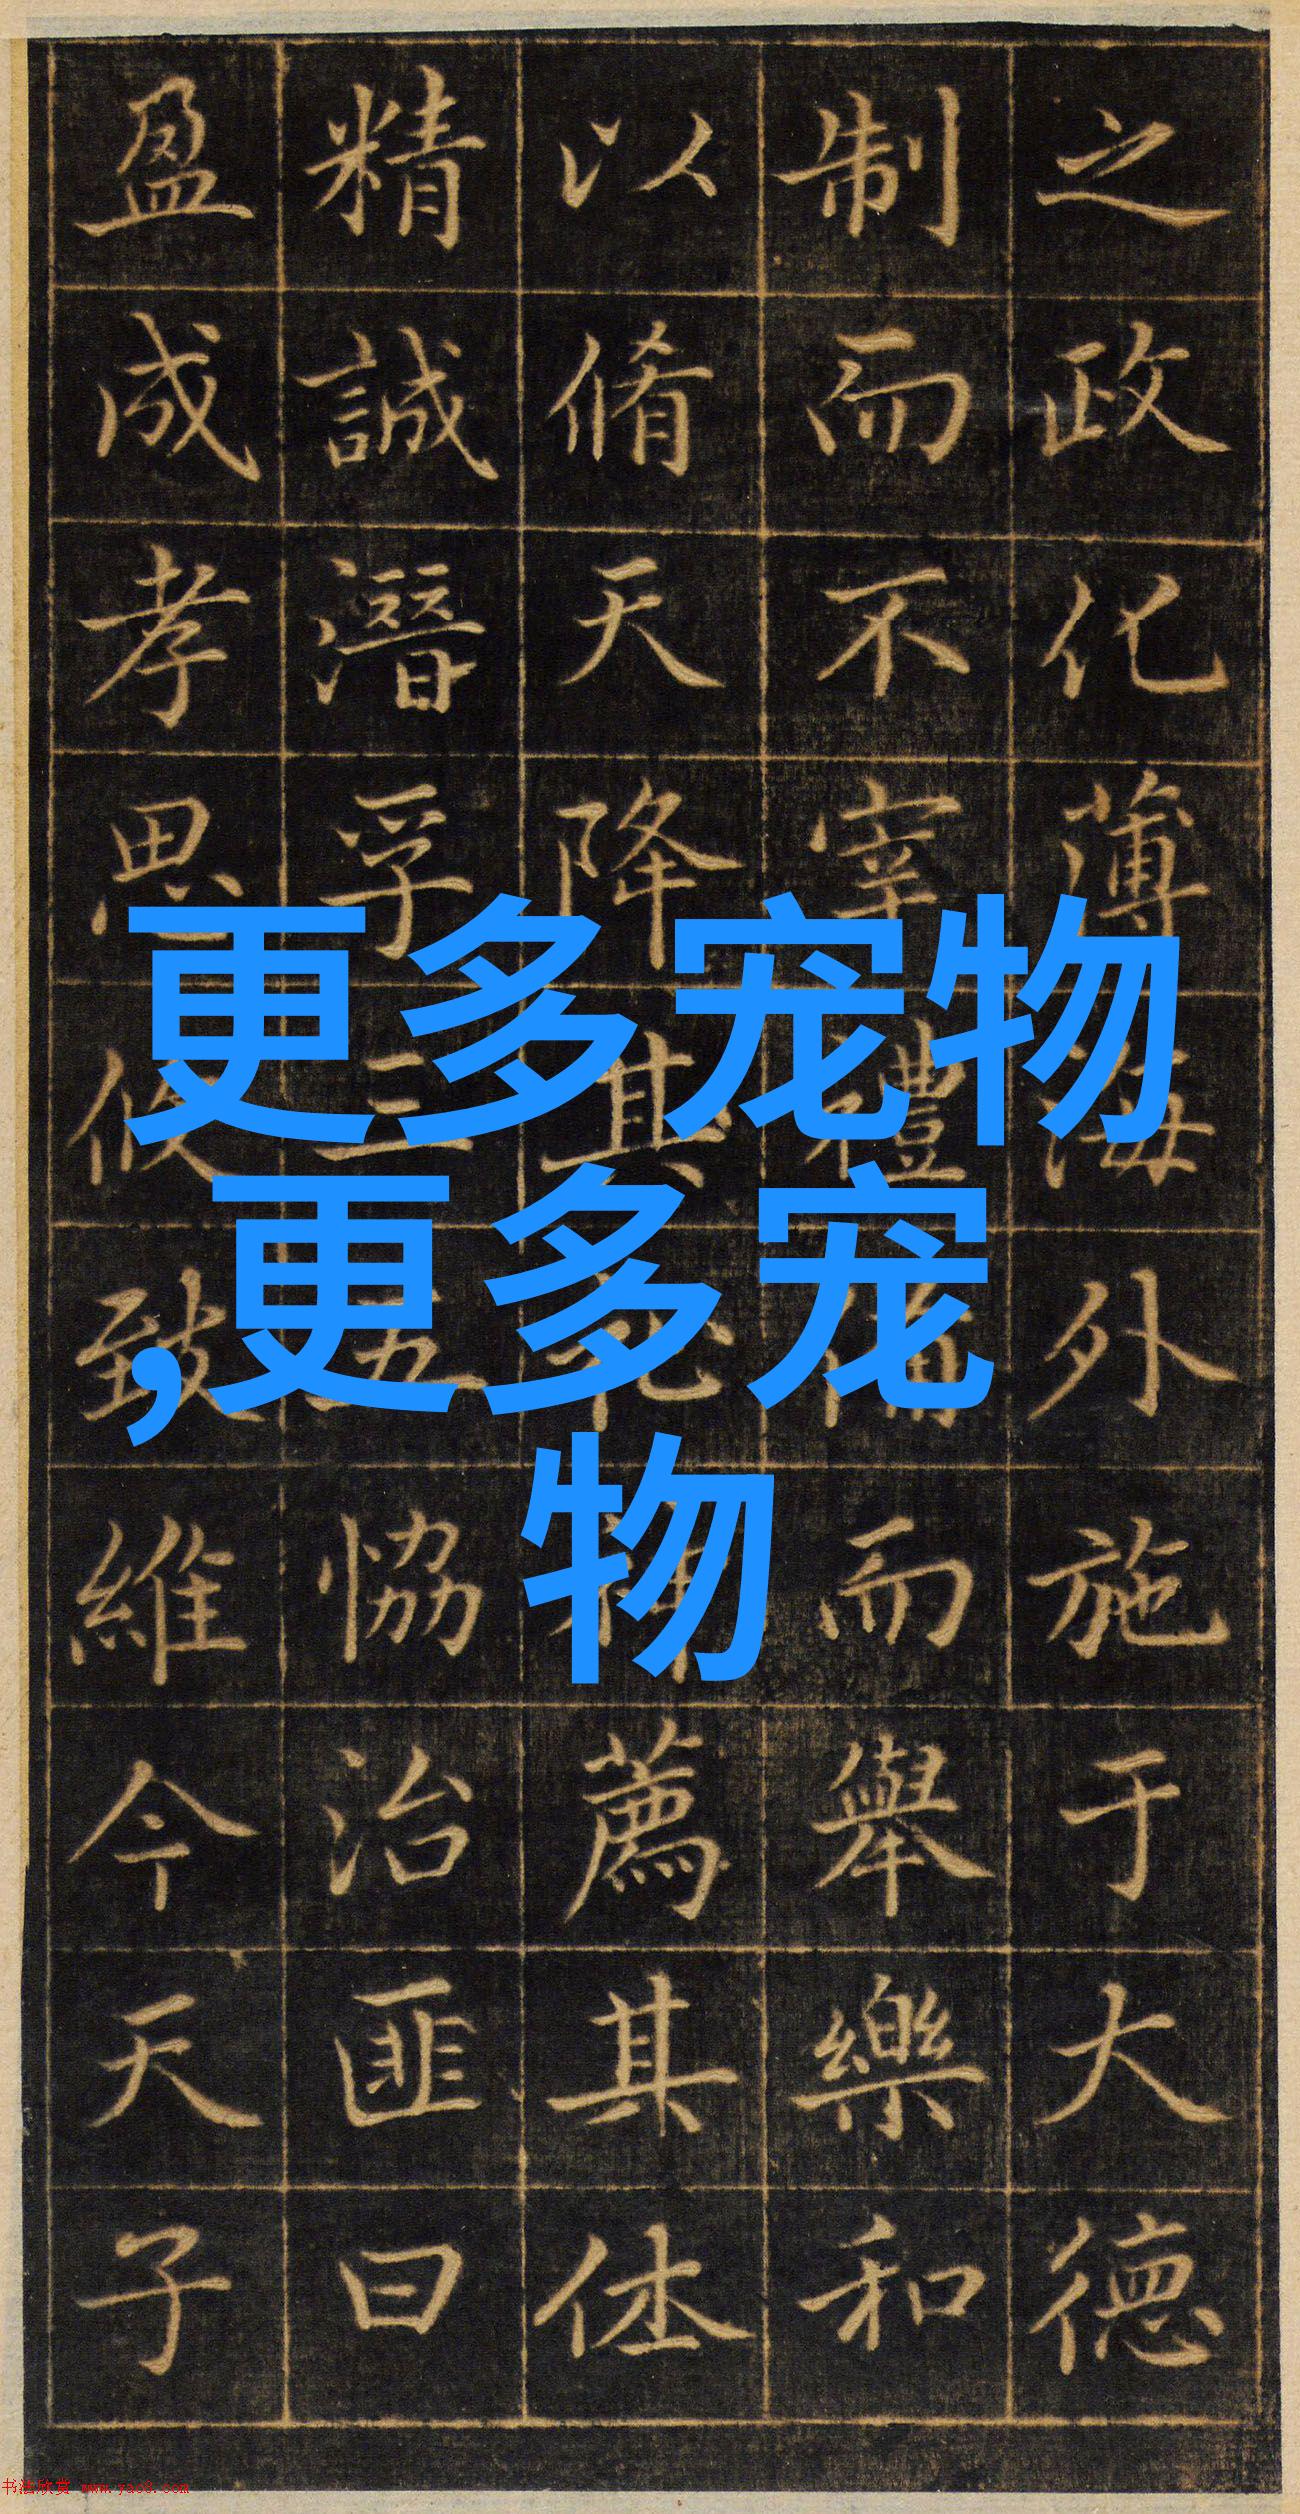 之政化薄海外施于大德
制而不宰禮備而舉樂和
以脩天降其薦其体
精誠潛孚三五恊治匪曰
盈成孝思攸致維今天子
更多宠物
,更多宠
物
书法欣赏 www.yac8.com